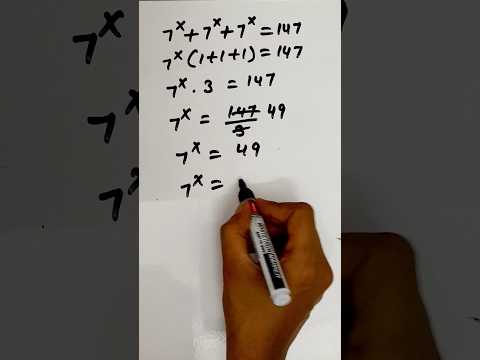 7^x + 7^x + 7^x = 147
7^x (1+1+1) = 147
7^x . 3 = 147
7^x = 147/3 49
7^x = 49
7^x =